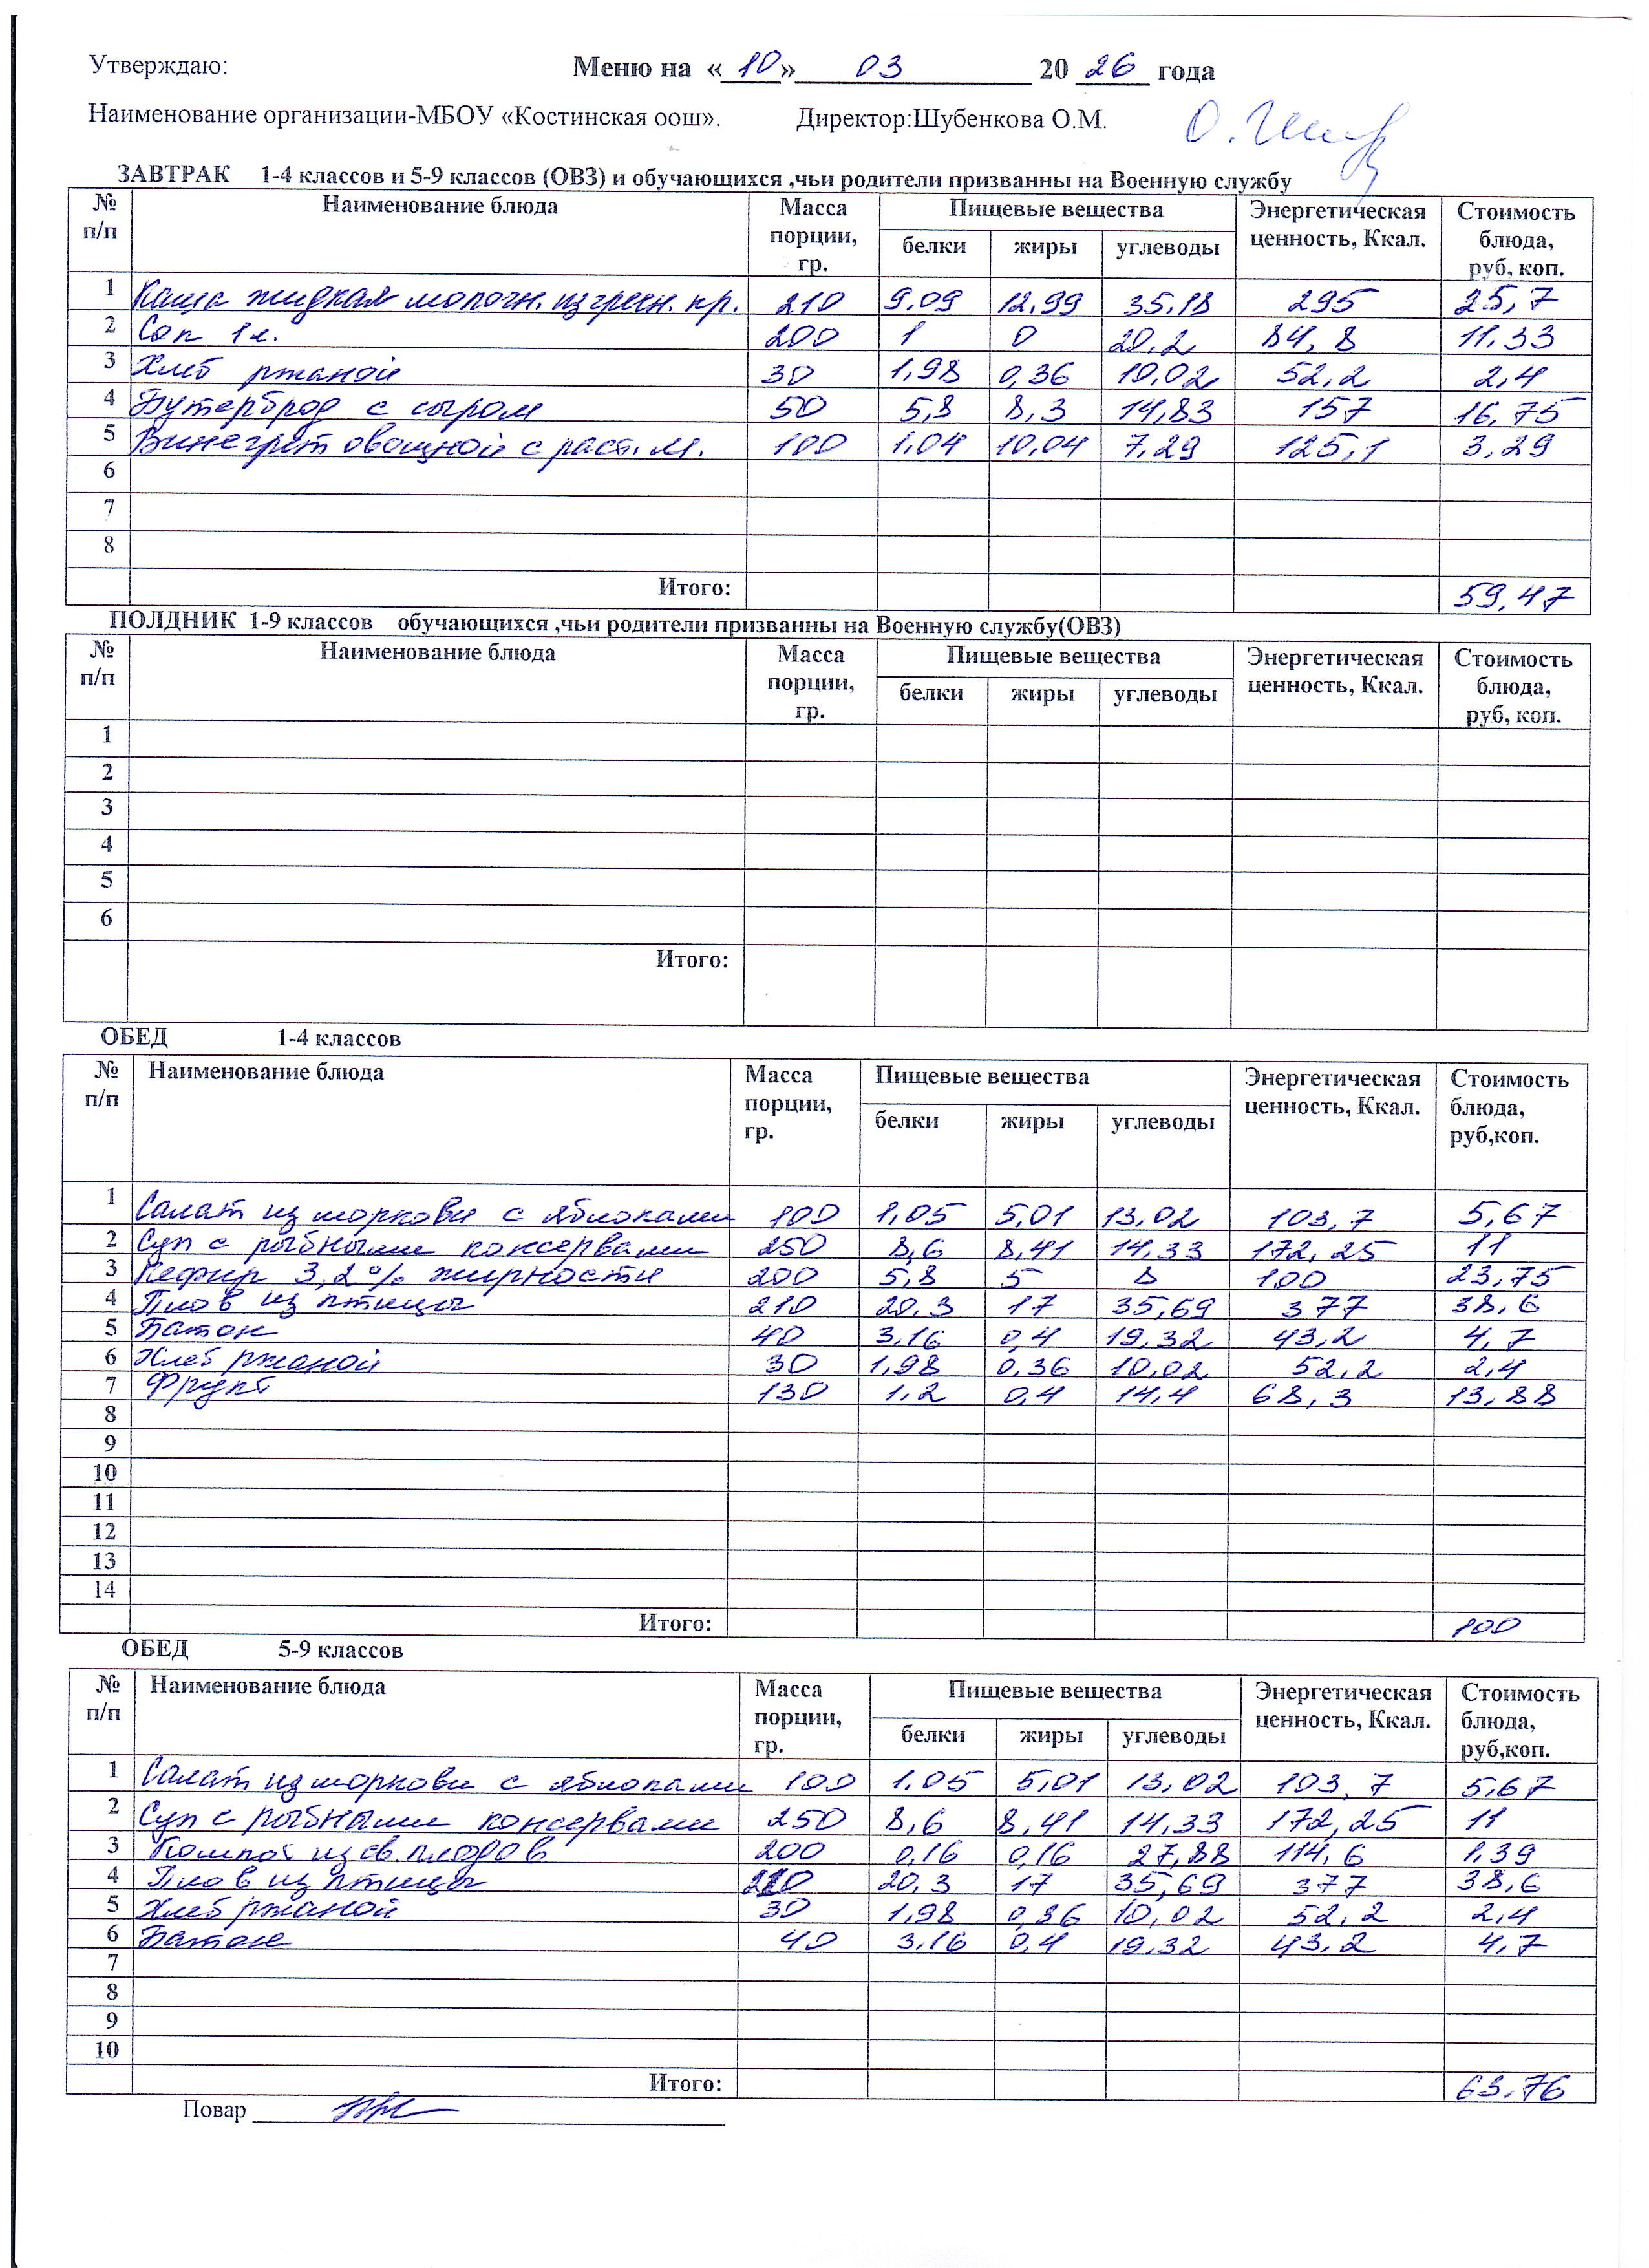 Утверждаю: Меню на «10» 03 2026 года
Наименование организации-МБОУ «Костинская оош». Директор:Шубенкова О.М.
ЗАВТРАК 1-4 классов и 5-9 классов (ОВЗ) и обучающихся ,чьи родители призванны на Военную службу
№ п/п Наименование блюда Масса порции, гр. Пищевые вещества Энергетическая ценность, Ккал. Стоимость блюда, руб, коп.
белки жиры углеводы
1 Каша жидкая молочн. из гречн. кр. 210 9,09 12,99 35,18 295 25,7
2 Сок 1л. 200 1 0 20,2 84,8 11,33
3 Хлеб ржаной 30 1,98 0,36 10,02 52,2 2,4
4 Бутерброд с сыром 50 5,8 8,3 14,83 157 16,75
5 Винегрет овощной с раст. м. 100 1,04 10,04 7,29 125,1 3,29
6
7
8
Итого: 59,47
ПОЛДНИК 1-9 классов обучающихся ,чьи родители призванны на Военную службу(ОВЗ)
№ п/п Наименование блюда Масса порции, гр. Пищевые вещества Энергетическая ценность, Ккал. Стоимость блюда, руб, коп.
белки жиры углеводы
1
2
3
4
5
6
Итого:
ОБЕД 1-4 классов
№ п/п Наименование блюда Масса порции, гр. Пищевые вещества Энергетическая ценность, Ккал. Стоимость блюда, руб,коп.
белки жиры углеводы
1 Салат из моркови с яблоками 100 1,05 5,01 13,02 103,7 5,67
2 Суп с рыбными консервами 250 8,6 8,41 14,33 172,25 11
3 Кефир 3,2% жирности 200 5,8 5 8 100 23,75
4 Плов из птицы 210 20,3 17 35,69 377 38,6
5 Батон 40 3,16 0,4 19,32 43,2 4,7
6 Хлеб ржаной 30 1,98 0,36 10,02 52,2 2,4
7 Фрукт 130 1,2 0,4 14,4 68,3 13,88
8
9
10
11
12
13
14
Итого: 100
ОБЕД 5-9 классов
№ п/п Наименование блюда Масса порции, гр. Пищевые вещества Энергетическая ценность, Ккал. Стоимость блюда, руб,коп.
белки жиры углеводы
1 Салат из моркови с яблоками 100 1,05 5,01 13,02 103,7 5,67
2 Суп с рыбными консервами 250 8,6 8,41 14,33 172,25 11
3 Компот из св. плодов 200 0,16 0,16 27,88 114,6 1,39
4 Плов из птицы 210 20,3 17 35,69 377 38,6
5 Хлеб ржаной 30 1,98 0,36 10,02 52,2 2,4
6 Батон 40 3,16 0,4 19,32 43,2 4,7
7
8
9
10
Итого: 63,76
Повар